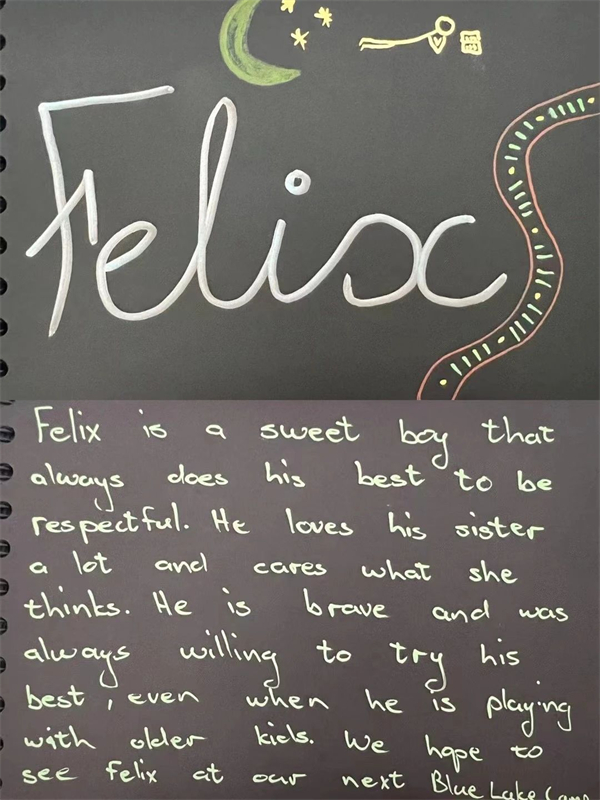 Felix
Felix is a sweet boy that
always does his best to be
respectful. He loves his sister
a lot and cares what she
thinks. He is brave and was
always willing to try his
best, even when he is playing
with older kids. We hope to
see Felix at our next Blue Lake Camp